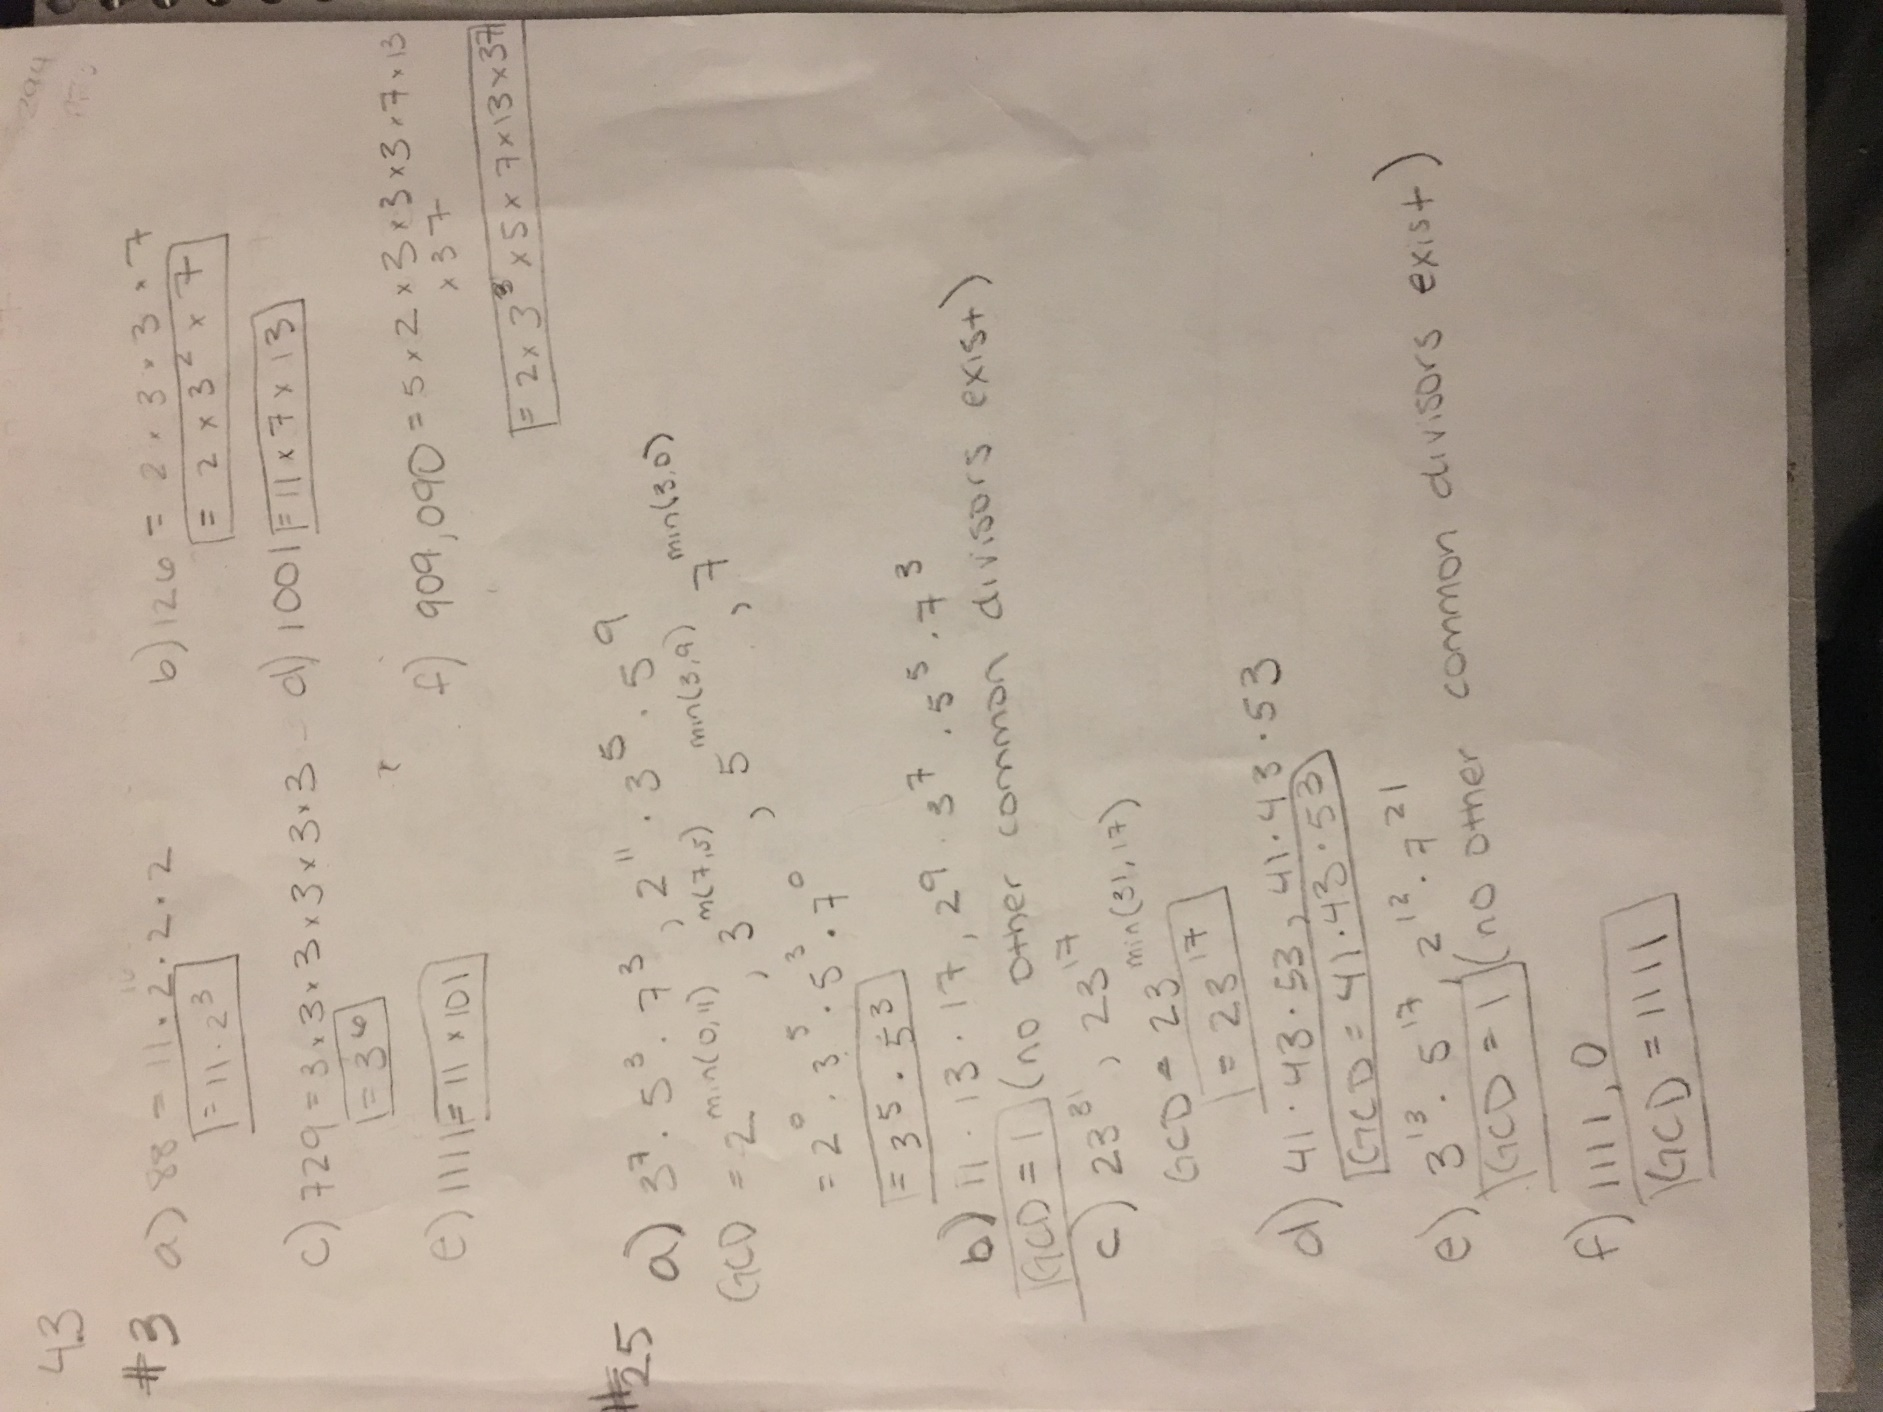 4.3
#3 a) 88 = 11·2·2·2 b) 126 = 2×3×3×7
= 11·2³ = 2×3²×7
c) 729 = 3×3×3×3×3×3 d) 1001 = 11×7×13
= 3⁶
e) 1111 = 11×101 f) 909,090 = 5×2×3×3×3×7×13
×37
= 2×3³×5×7×13×37
#25 a) 3⁷·5³·7³, 2¹¹·3⁵·5⁹
GCD = 2^min(0,11), 3^m(7,5), 5^min(3,9), 7^min(3,0)
= 2⁰·3⁵·5³·7⁰
= 3⁵·5³
b) 11·13·17, 2⁹·3⁷·5⁵·7³
GCD = 1 (no other common divisors exist)
c) 23³¹, 23¹⁷
GCD = 23^min(31,17)
= 23¹⁷
d) 41·43·53, 41·43·53
GCD = 41·43·53
e) 3¹³·5¹⁷, 2¹²·7²¹
GCD = 1 (no other common divisors exist)
f) 1111, 0
GCD = 1111